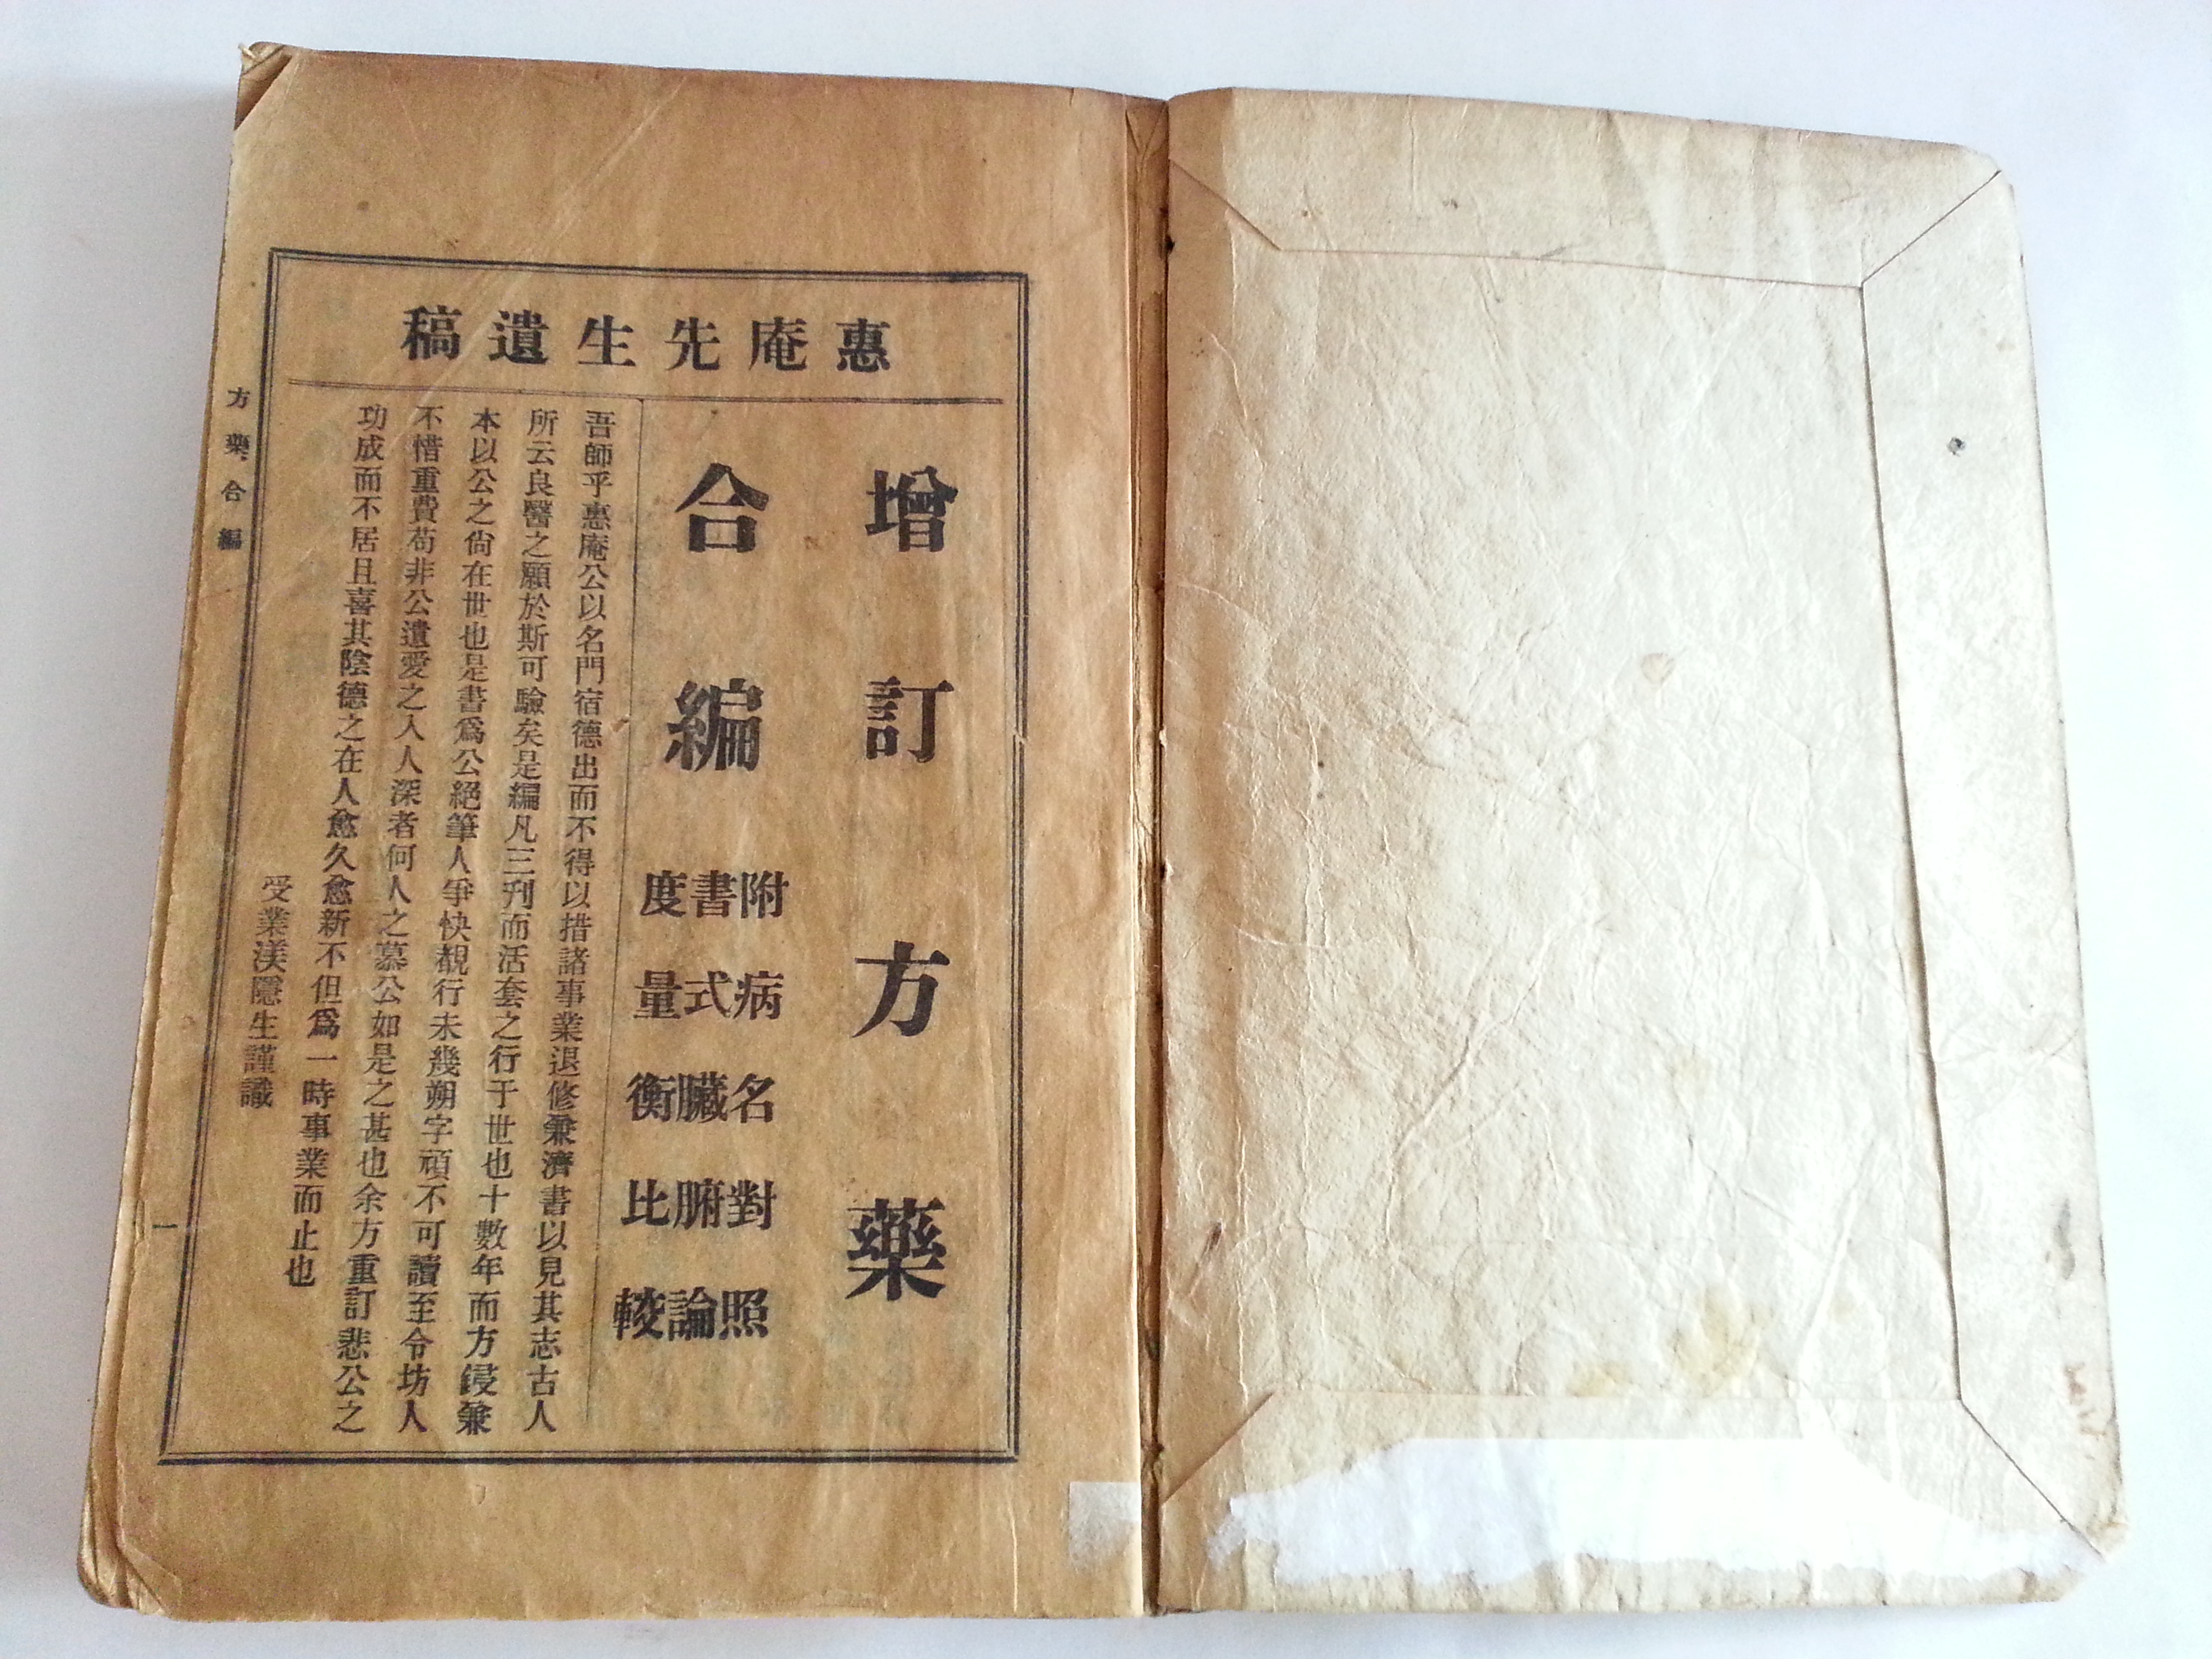 惠庵先生遺稿
增訂方藥
合編
附病名對照
書式臟腑論
度量衡比較
吾師乎惠庵公以名門宿德出而不得以措諸事業退修兼濟書以見其志古人
所云良醫之願於斯可驗矣是編凡三刊而活套之行于世也十數年而方鋟兼
本以公之尙在世也是書爲公絕筆人爭快覩行未幾朔字頑不可讀至令坊人
不惜重費苟非公遺愛之入人深者何人之慕公如是之甚也余方重訂悲公之
功成而不居且喜其陰德之在人愈久愈新不但爲一時事業而止也
受業渼隱生謹識
方藥合編
一